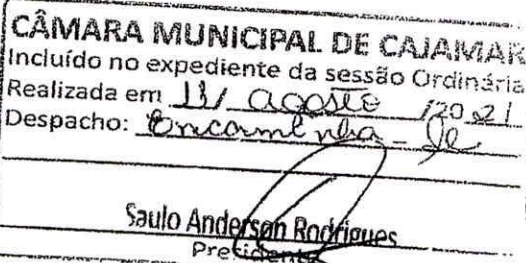 CÂMARA MUNICIPAL DE CAJAMAR
Incluído no expediente da sessão Ordinária
Realizada em 11/ agosto /20 21
Despacho: Encaminha-se
Saulo Anderson Rodrigues
Presidente